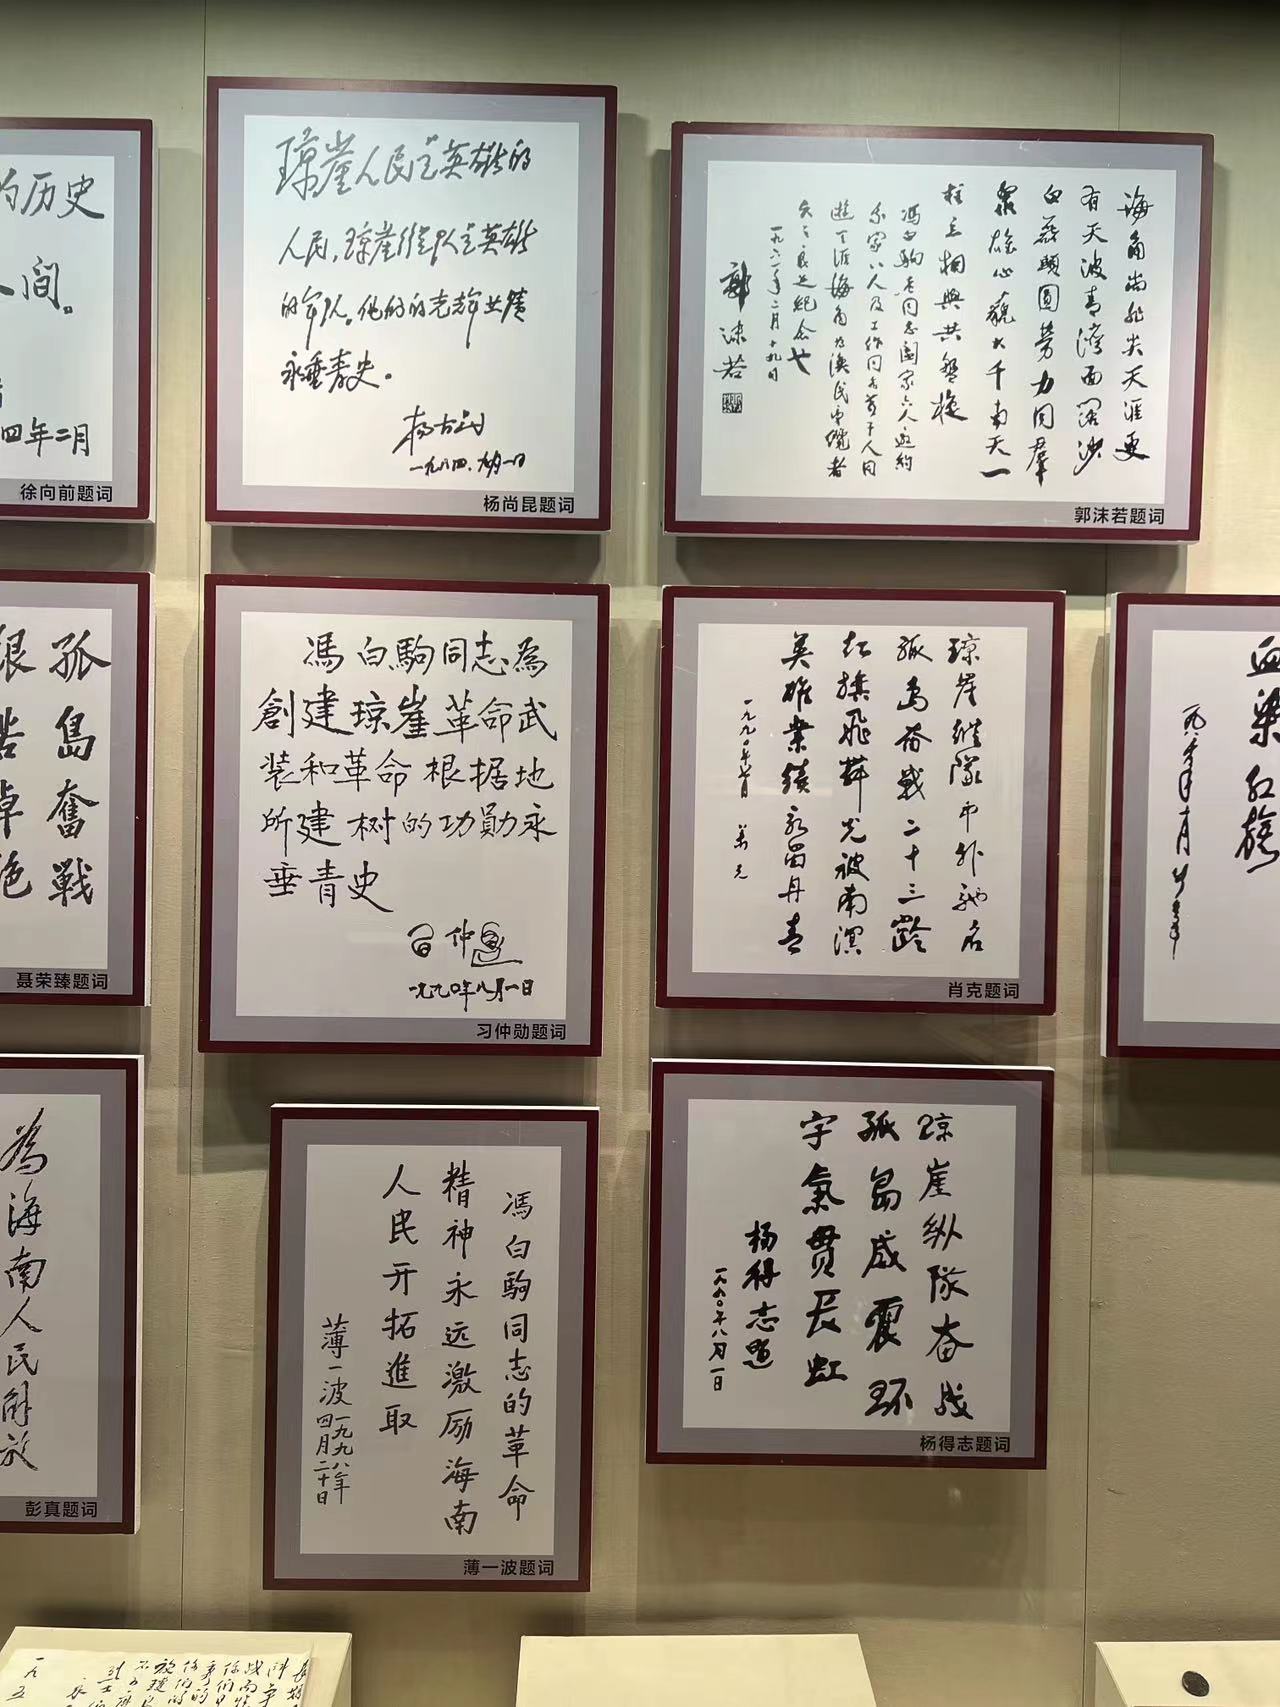 的历史
人间。
四年二月
徐向前题词
琼崖人民是英雄的
人民，琼崖纵队是英雄
的军队。他们的光辉业绩
永垂青史。
杨尚昆
一九八四．九月一日
杨尚昆题词
海角尚非尖天涯更
有天波青湾面阔沙
白磊头圆劳力同群
众雄心藐大千南天一
柱立相与共盘旋
冯白驹同志阖家六人邀约
余家八人及工作同志若干人同
游天涯海角
一九六一年二月十九日
郭沫若
郭沫若题词
孤島奮戰
艰苦卓绝
聂荣臻题词
馮白駒同志為
創建琼崖革命武
装和革命根据地
所建树的功勋永
垂青史
习仲勋
一九九〇年八月一日
习仲勋题词
琼崖縱隊中外馳名
孤岛奋战二十三龄
红旗飛舞光被南溟
英雄業績永留丹青
萧克
肖克题词
血染红旗
為海南人民解放
彭真题词
馮白駒同志的革命
精神永远激励海南
人民开拓進取
薄一波一九九八年
四月二十日
薄一波题词
琼崖纵隊奋战
孤島威震环
宇氣贯长虹
杨得志题
一九九〇年八月一日
杨得志题词